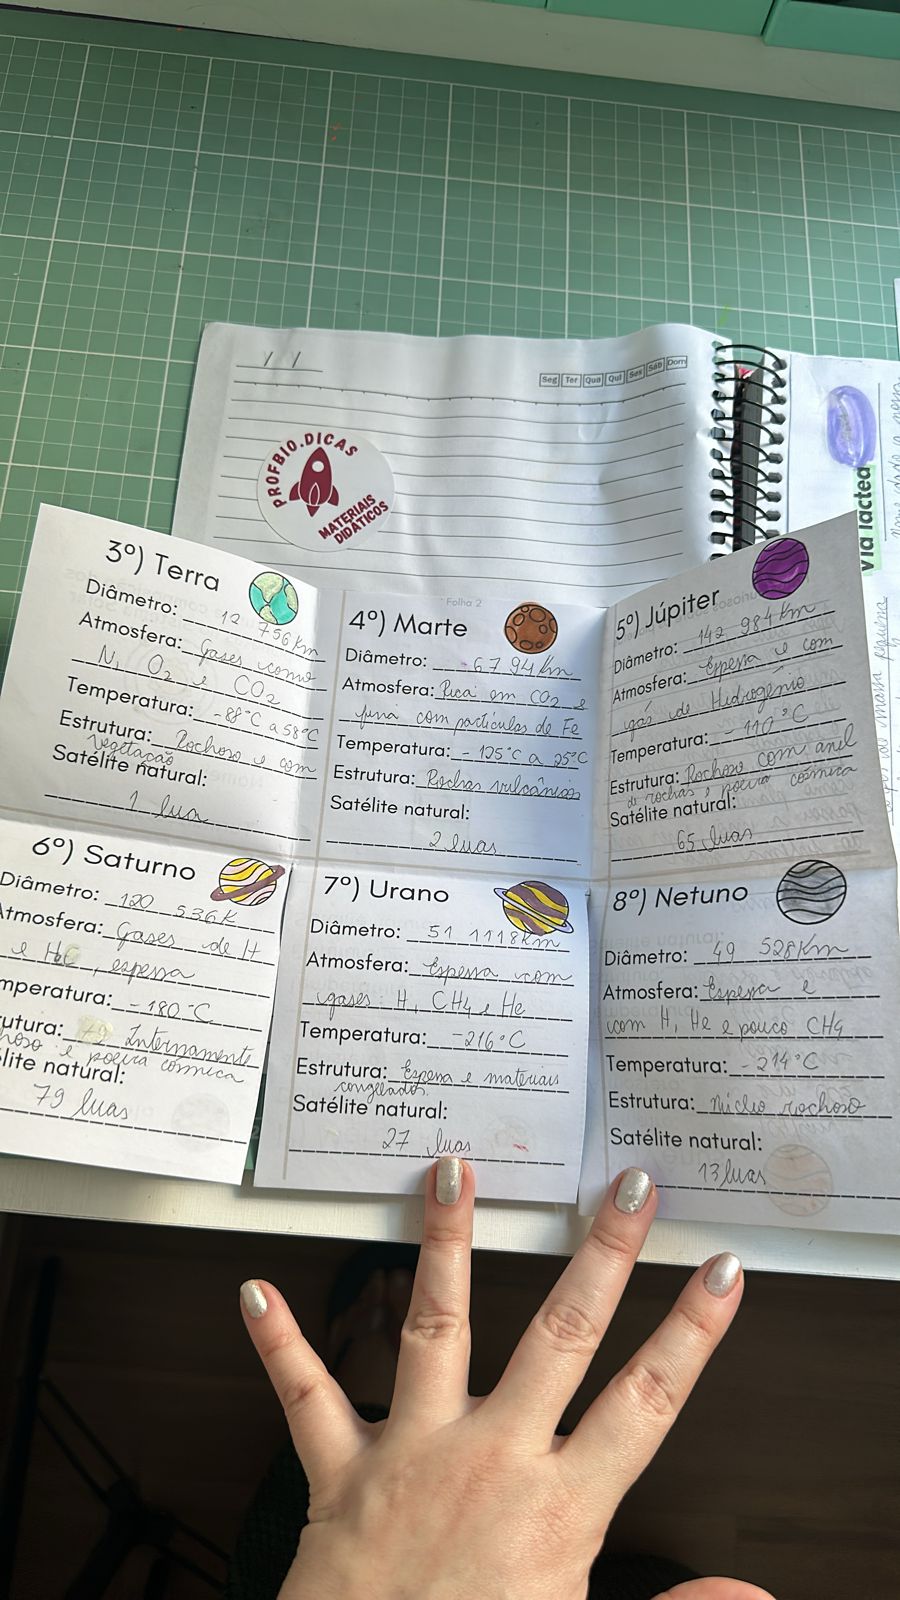 / /
Seg Ter Qua Qui Sex Sáb Dom
PROFBIO.DICAS
MATERIAIS
DIDÁTICOS
Via láctea
3º) Terra
Diâmetro: 12 756 Km
Atmosfera: Gases como
N, O2 e CO2
Temperatura: -88°C a 58°C
Estrutura: Rochoso e com
vegetação
Satélite natural:
1 lua
Folha 2
4º) Marte
Diâmetro: 67 94 Km
Atmosfera: Rica em CO2 e
fina com partículas de Fe
Temperatura: - 125°C a 25°C
Estrutura: Rochas vulcânicas
Satélite natural:
2 luas
5º) Júpiter
Diâmetro: 142 984 Km
Atmosfera: Espessa e com
gás de Hidrogênio
Temperatura: - 110 °C
Estrutura: Rochoso com anel
de rochas e poeira cósmica
Satélite natural:
65 luas
6º) Saturno
Diâmetro: 120 536 K
Atmosfera: Gases de H
e He, espessa
mperatura: - 180 °C
rutura: Internamente
hoso e poeira cósmica
élite natural:
79 luas
7º) Urano
Diâmetro: 51 1118 Km
Atmosfera: Espessa com
gases: H, CH4 e He
Temperatura: -216°C
Estrutura: Espessa e materiais
congelados.
Satélite natural:
27 luas
8º) Netuno
Diâmetro: 49 528 Km
Atmosfera: Espessa e
com H, He e pouco CH4
Temperatura: - 214°C
Estrutura: Núcleo rochoso
Satélite natural:
13 luas